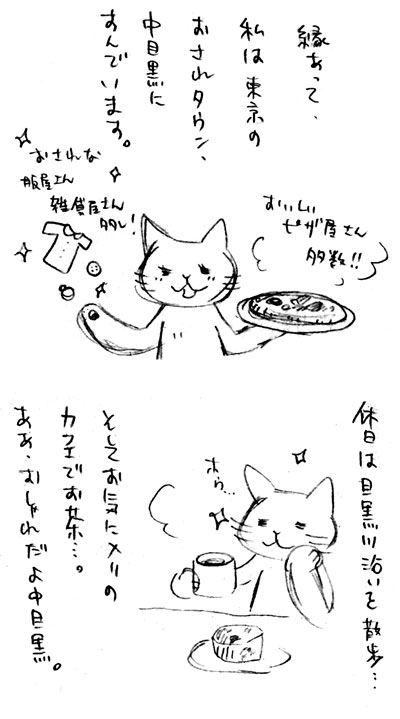 縁あって、
私は東京の
おされタウン、
中目黒に
すんでいます。
おいしい
ピザ屋さん
多数!!
おされな
服屋さん
雑貨屋さん
多し!
休日は目黒川沿いを散歩…
ほら…
そしてお気にメリの
カフェでお茶…。
ああ、おしゃれだよ中目黒。